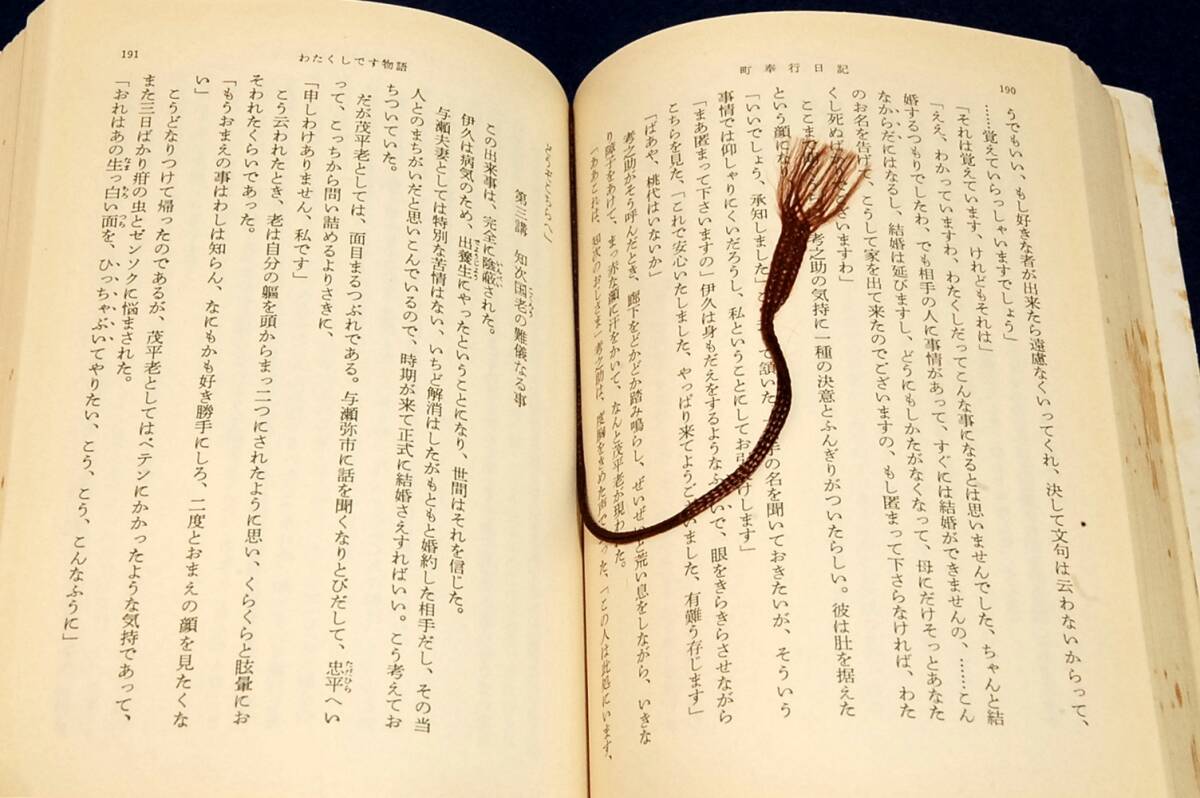 町奉行日記
190
うでもいい、もし好きな者が出来たら遠慮なくいってくれ、決して文句は云わないからって、
……覚えていらっしゃいますでしょう」
「それは覚えています、けれどもそれは」
「ええ、わかっていますわ、わたくしだってこんな事になるとは思いませんでした、ちゃんと結
婚するつもりでしたわ、でも相手の人に事情があって、すぐには結婚ができませんの、……こん
なからだにはなるし、結婚は延びますし、どうにもしかたがなくなって、母にだけそっとあなた
のお名を告げて、こうして家を出て来たのでございますの、もし匿まって下さらなければ、わた
くし死ぬば
ございますわ」
ここま
考之助の気持に一種の決意とふんぎりがついたらしい。彼は肚を据えた
という顔にな
で頷いた
の名を聞いておきたいが、そういう
「いいでしょう、承知しました」
事情では仰しゃりにくいだろうし、私ということにしてお引
けします」
「まあ匿まって下さいますの」伊久は身もだえをするような
いで、眼をきらきらさせながら
こちらを見た、「これで安心いたしました、やっぱり来てよう
いました、有難う存じます」
「ばあや、桃代はいないか」
考之助がそう呼んだとき、廊下をどかどか踏み鳴らし、ぜいぜい
と荒い息をしながら、いきな
り障子をあけて、まっ赤な顔に汗をかいて、なんと茂平老が現わ
た。
「ああこれは、知次のおじさま」考之助は、度胸をきめた声で
った、「この人は此処にいます、
わたくしです物語
191
どうぞこちらへ」
第三講 知次国老の難儀なる事
この出来事は、完全に陰蔽された。
伊久は病気のため、出養生にやったということになり、世間はそれを信じた。
与瀬夫妻としては特別な苦情はない、いちど解消はしたがもともと婚約した相手だし、その当
人とのまちがいだと思いこんでいるので、時期が来て正式に結婚さえすればいい。こう考えてお
ちついていた。
だが茂平老としては、面目まるつぶれである。与瀬弥市に話を聞くなりとびだして、忠平へい
って、こっちから問い詰めるよりさきに、
「申しわけありません、私です」
こう云われたとき、老は自分の軀を頭からまっ二つにされたように思い、くらくらと眩暈にお
そわれたくらいであった。
「もうおまえの事はわしは知らん、なにもかも好き勝手にしろ、二度とおまえの顔を見たくな
い」
こうどなりつけて帰ったのであるが、茂平老としてはペテンにかかったような気持であって、
また三日ばかり疳の虫とゼンソクに悩まされた。
「おれはあの生っ白い面を、ひっちゃぶいてやりたい、こう、こう、こんなふうに」